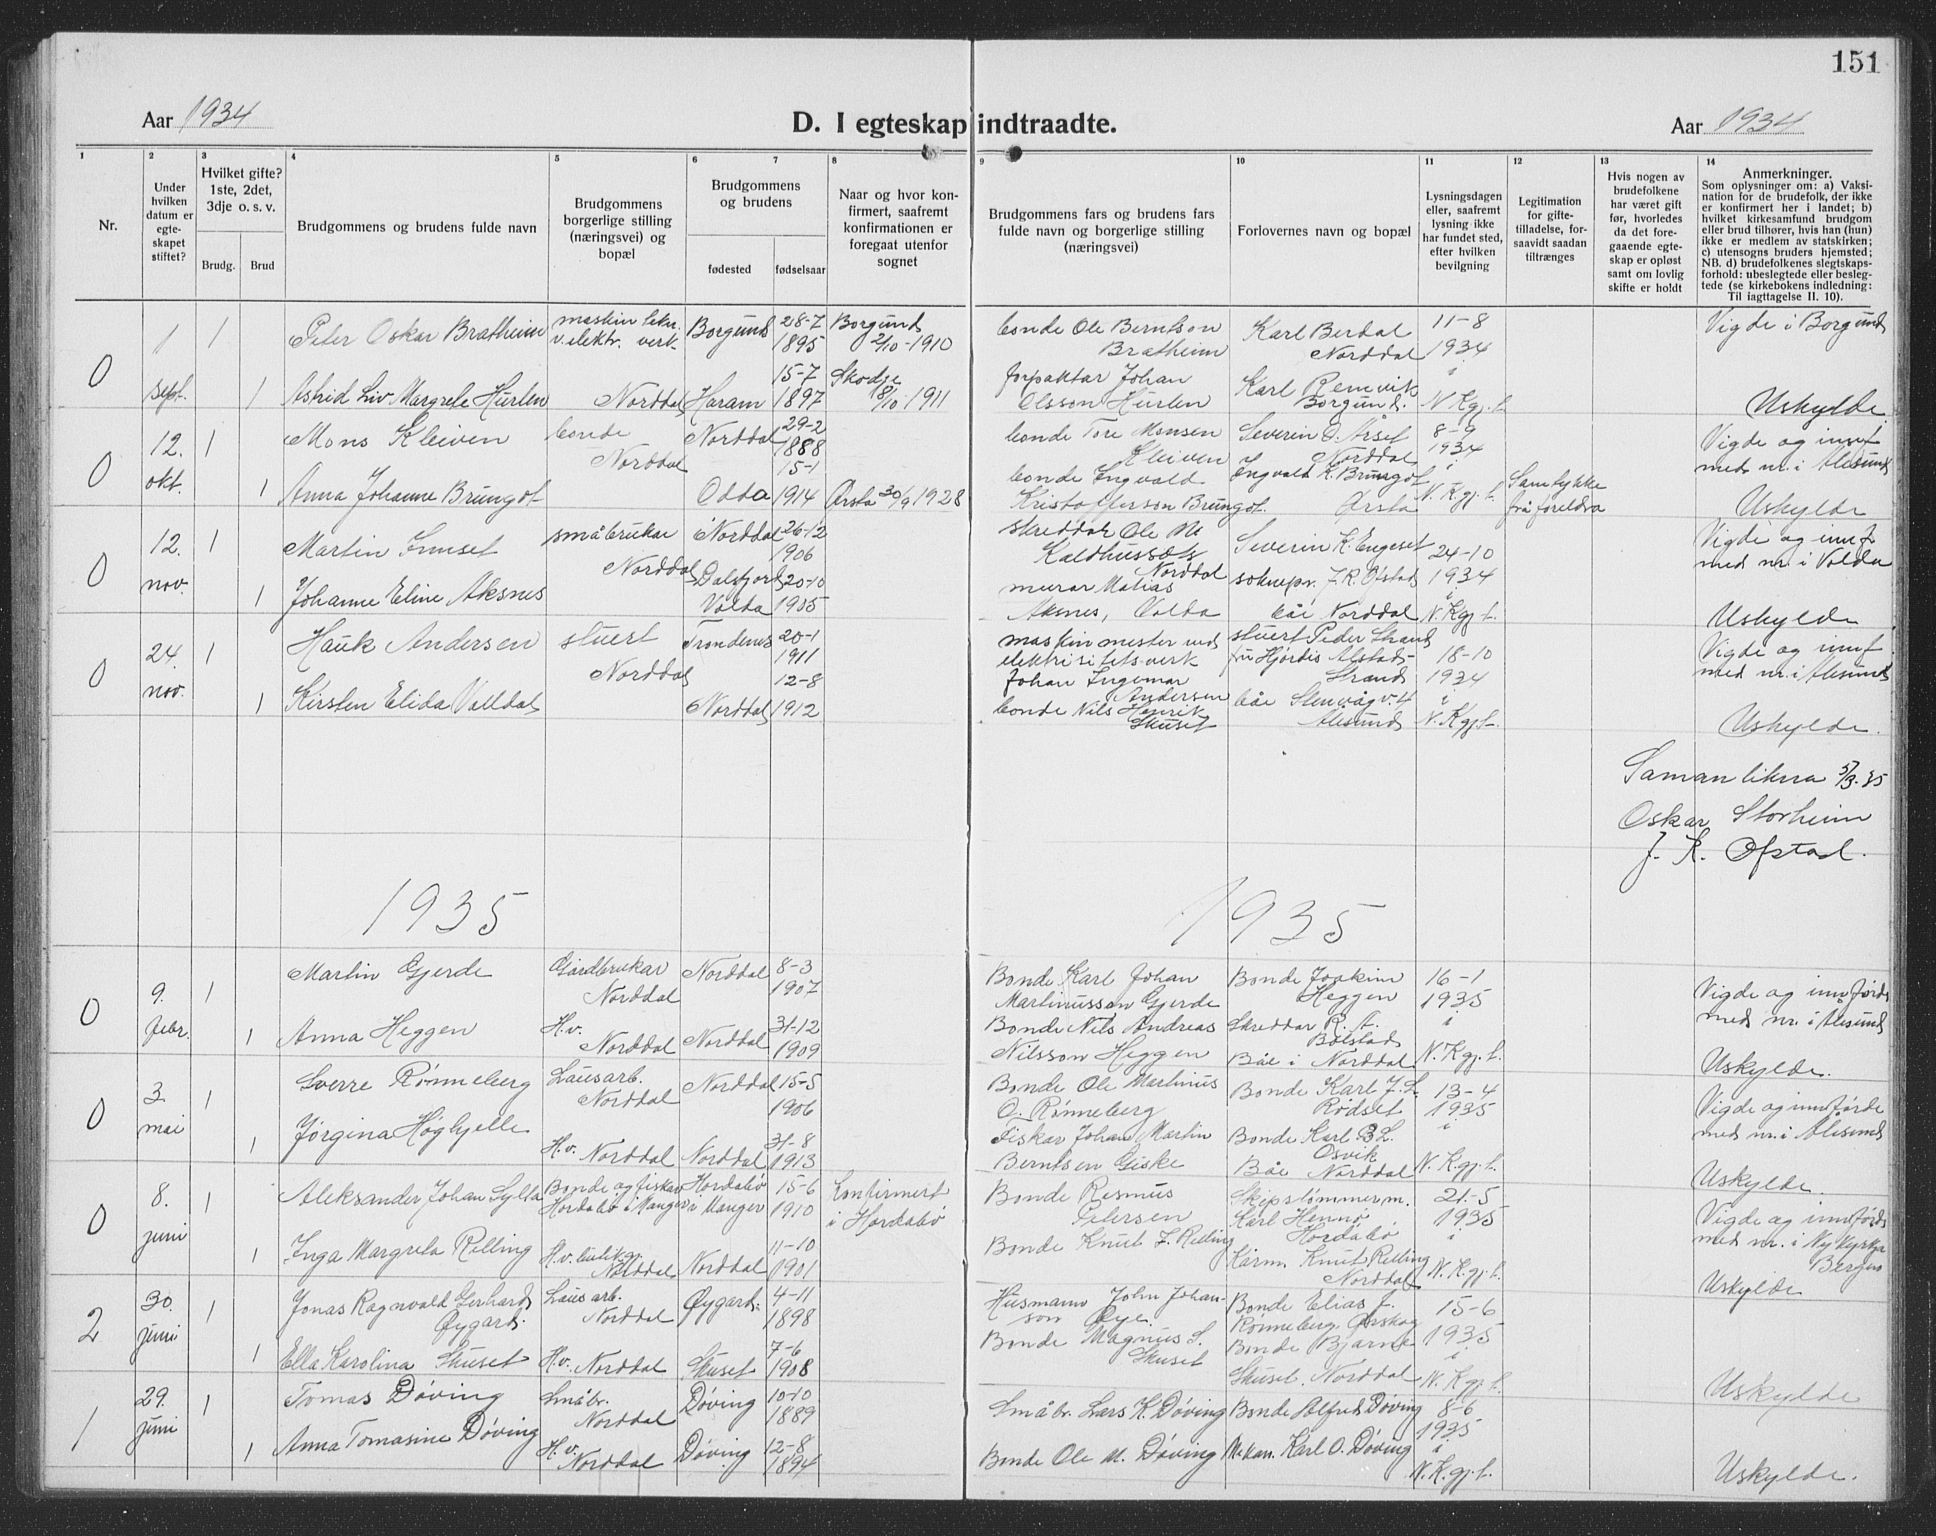 151
Aar 1934
D. I egteskap indtraadte.
Aar 1934
1
2
3
4
5
6
7
8
9
10
11
12
13
14
Nr.
Under
hvilken
datum er
egte-
skapet
stiftet?
Hvilket gifte?
1ste, 2det,
3dje o. s. v.
Brudg.
Brud
Brudgommens og brudens fulde navn
Brudgommens
borgerlige stilling
(næringsvei) og
bopæl
Brudgommens
og brudens
fødested
fødselsaar
Naar og hvor kon-
firmert, saafremt
konfirmationen er
foregaat utenfor
sognet
Brudgommens fars og brudens fars
fulde navn og borgerlige stilling
(næringsvei)
Forlovernes navn og bopæl
Lysningsdagen
eller, saafremt
lysning ikke
har fundet sted,
efter hvilken
bevilgning
Legitimation
for gifte-
tilladelse, for-
saavidt saadan
tiltrænges
Hvis nogen av
brudefolkene
har været gift
før, hvorledes
da det fore-
gaaende egte-
skap er opløst
samt om lovlig
skifte er holdt
Anmerkninger.
Som oplysninger om: a) Vaksi-
nation for de brudefolk, der ikke
er konfirmert her i landet; b)
hvilket kirkesamfund brudgom
eller brud tilhører, hvis han (hun)
ikke er medlem av statskirken;
c) utensogns bruders hjemsted;
NB. d) brudefolkenes slegtskaps-
forhold: ubeslegtede eller besleg-
tede (se kirkebokens indledning:
Til iagttagelse II. 10).
0
1
sept.
1
Peter Oskar Bratheim
maskintekn.
v. elektr. verk
Borgund
28-7
1895
Borgund
2/10-1910
bonde Ole Berntson
Bratheim
Karl Berdal
Norddal
11-8
1934
i
N. Kgj. t.
Vigde i Borgund
1
Astrid Liv Margrete Hurlen
Norddal
Haram
15-7
1897
Skodje
8/10-1911
forpaktar Johan
Olsson Hurlen
Karl Remvik
Borgund.
Uskylde
0
12.
okt.
1
Mons Kleiven
bonde
Norddal
Norddal
29-2
1888
bonde Tore Monsen
Kleiven
Severin O. Årset
Norddal
8-9
1934
i
N. Kgj. t.
Vigde og innf
med nr. i Ålesund
1
Anna Johanne Brungot
Odda
15-1
1914
Ørsta 30/9 1928
bonde Ingvald
Kristoffersson Brungot.
Ingvald K. Brungot
Ørsta
Samtykke
frå foreldra
Uskylde
0
12.
nov.
1
Martin Innset
småbrukar
Norddal
Norddal
26-12
1906
skreddar Ole M.
Kaldhussæts
Norddal
Severin K. Engeset
24-10
1934
i
N. Kgj. t.
Vigde og innf
med nr. i Volda
1
Johanne Eline Aksnes
Dalsfjord
Volda
20-10
1905
murar Matias
Aksnes, Volda
soknepr. J. R. Ofstad
båe Norddal
Uskylde
0
24.
nov.
1
Hauk Andersen
stuert
Norddal
Trondenes
20-1
1911
maskinmester ved
elektrisitetsverk
Johan Ingemar
Andersen
stuert Peder Strand
fru Hjørdis Alstad-
Strand
18-10
1934
i
N. Kgj. t.
Vigde og innf
med nr. i Ålesund
1
Kirsten Elida Valldal
Norddal
12-8
1912
bonde Nils Henrik
Skuset
båe Stenvåg v. 4
Ålesund
Uskylde.
Samanlikna 5/3-35
Oskar Storheim
J. R. Ofstad.
1935
1935
0
9.
febr.
1
Martin Gjerde
Gardbrukar
Norddal
Norddal
8-3
1907
Bonde Karl Johan
Martinusson Gjerde
Bonde Joakim
Heggen
16-1
1935
i
N. Kgj. t.
Vigde og innførde
med nr. i Ålesund
1
Anna Heggen
H.v.
Norddal
Norddal
31-12
1909
Bonde Nils Andreas
Nilsson Heggen
Skreddar R. A.
Bolstad
Båe i Norddal
Uskylde.
0
3.
mai
1
Sverre Rønneberg
Lausarb.
Norddal
Norddal
15-5
1906
Bonde Ole Martinus
O. Rønneberg
Bonde Karl J. L.
Rødset
13-4
1935
i
N. Kgj. t.
Vigde og innførde
med nr. i Ålesund
1
Jørgina Høghjelle
H.v. Norddal
Norddal
31-8
1913
Fiskar Johan Martin
Berntsen Giske
Bonde Karl B. L.
Osvik
Båe Norddal
Uskylde
0
8.
juni
1
Aleksander Johan Sylta
Bonde og fiskar
Hordabø i Manger
Hordabø
i Manger
15-6
1910
Konfirmert
i Hordabø
Bonde Rasmus
Petersen
Skipstømmerm.
Karl Hennø
Hordabø
21-5
1935
i
N. Kgj. t.
Vigde og innførde
med nr. i Nykyrkja
Bergen
1
Inga Margreta Relling
H.v.
Norddal
Norddal
11-10
1901
Bonde Knut L. Relling
Kårm. Knut Relling
Norddal
Uskylde
2
30.
juni
1
Jonas Ragnvald Gerhard
Øygard.
Lausarb.
Norddal
Øygard.
4-11
1898
Husmann John Johan-
son Øye
Bonde Elias J.
Rønneberg, Ørskog
15-6
1935
i
N. Kgj. t.
1
Ella Karolina Skuset
H.v. Norddal
Skuset
7-6
1908
Bonde Magnus S.
Skuset
Bonde Bjarne
Skuset. Norddal
Uskylde
1
29.
juni
1
Tomas Døving
Småbr.
Norddal
Døving
10-10
1889
Småbr. Lars K. Døving
Bonde Alfred Døving
8-6
1935
i
N. Kgj. t.
1
Anna Tomasine Døving
H.v.
Norddal
Døving
12-8
1894
Bonde Ole M. Døving
Karl O. Døving
Uskylde.